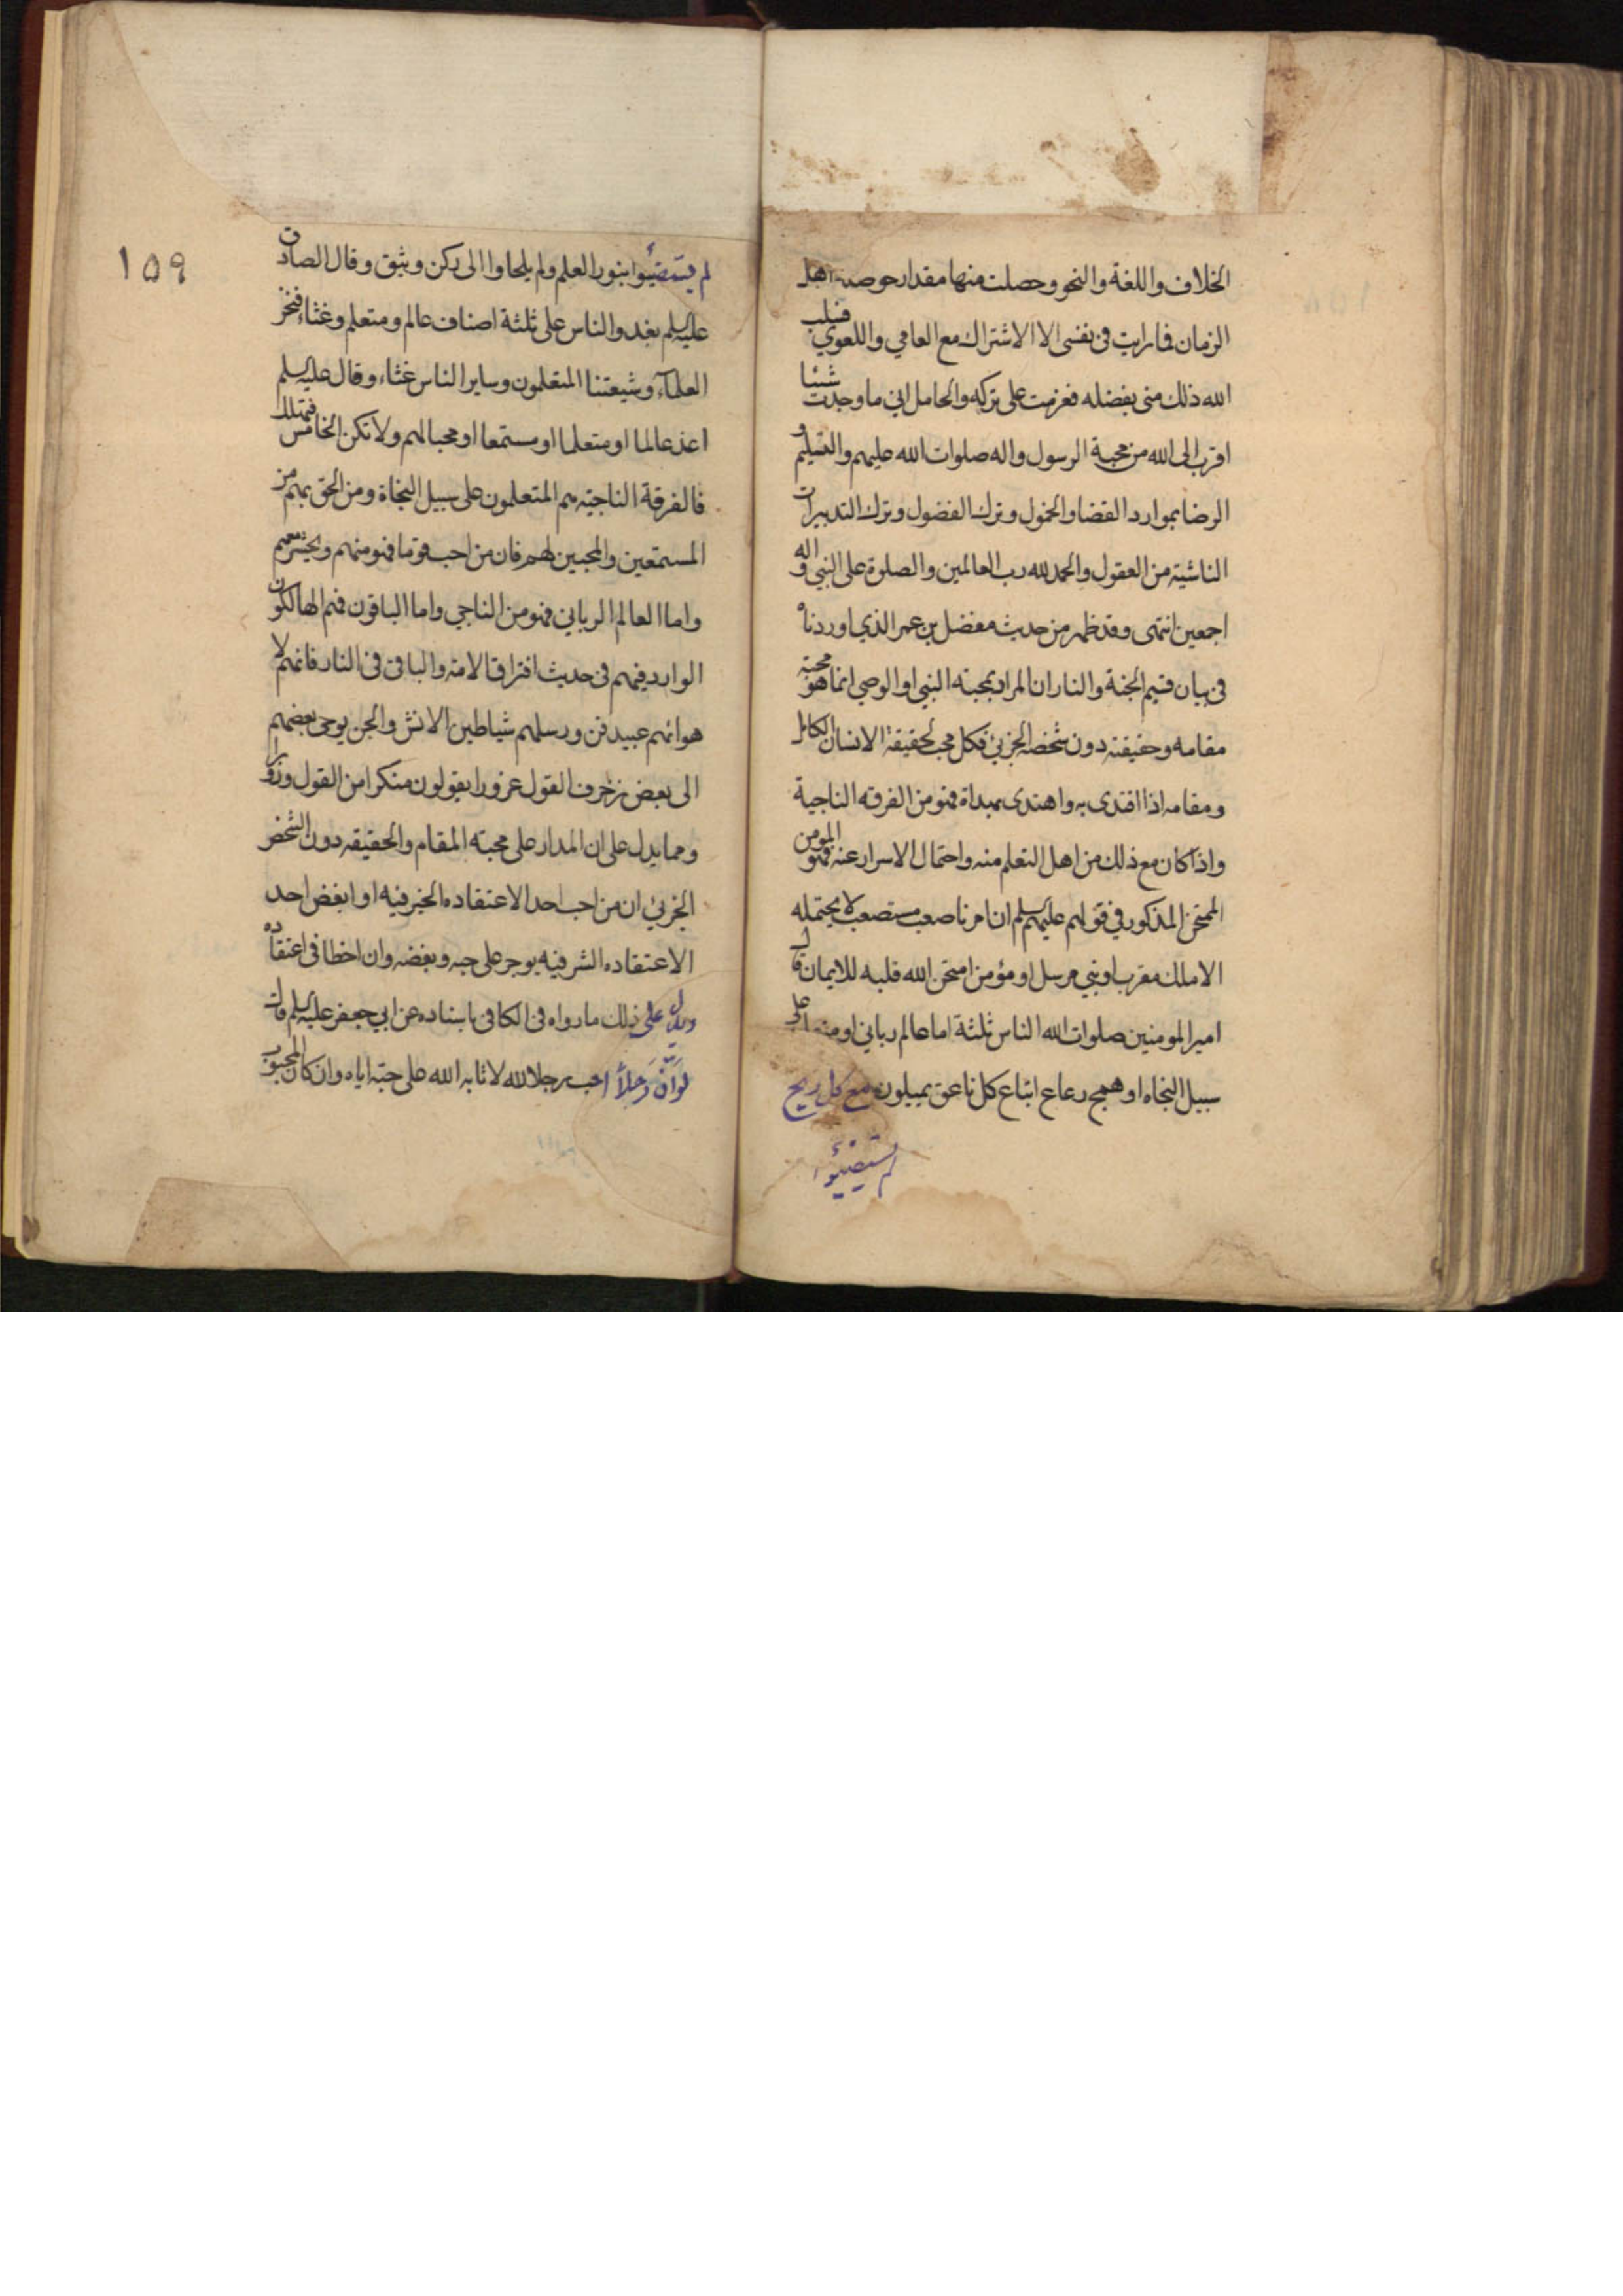 الخلاف واللغة والنحو وحصلت منها مقدار حوصلة اهل
الزمان فما رايت فى نفسى الا الاشتراك مع العامي واللغوي فسلب
الله ذلك منى بفضله فعزمت على تركه والحامل انى ما وجدت شيئا
اقرب الى الله من محبة الرسول واله صلوات الله عليهم والتسليم و
الرضا بموارد القضا والخمول وترك الفضول وترك التدبيرات
الناشية من العقول والحمد لله رب العالمين والصلوة على النبي واله
اجمعين انتهى وقد ظهر من حديث مفضل بن عمر الذي اوردناه
في بيان قسيم الجنة والنار ان المراد بمحبته النبي او الوصي انما هو محبته
مقامه وحقيقته دون شخصه الجزئي فكل محب لحقيقة الانسان الكامل
ومقامه اذا اقتدى به واهتدى بهداه فهو من الفرقه الناجية
واذا كان مع ذلك من اهل التعلم منه واحتمال الاسرار عنه فهو المومن
الممتحن المذكور في قولهم عليهم السلم ان امرنا صعب مستصعب لا يحتمله
الا ملك مقرب او نبي مرسل او مؤمن امتحن الله قلبه للايمان قال
امير المومنين صلوات الله الناس ثلثة اما عالم رباني او متعلم على
سبيل النجاه او همج رعاع اتباع كل ناعق يميلون مع كل ريح
لم يستضيئوا
١٥٩
لم يستضيئوا بنور العلم ولم يلجاوا الى ركن وثيق وقال الصادق
عليه السلم يغدوا الناس على ثلثة اصناف عالم ومتعلم وغثاء فنحن
العلماء وشيعتنا المتعلمون وساير الناس غثاء وقال عليه السلم
اغد عالما او متعلما او مستمعا او محبا لهم ولا تكن الخامس فتهلك
فالفرقة الناجيته هم المتعلمون على سبيل النجاة ومن الحق بهم من
المستمعين والمحبين لهم فان من احب قوما فهو منهم ويحشر معهم
واما العالم الرباني فهو من الناجي واما الباقون فهم الهالكون
الوارد فيهم فى حديث افتراق الامة والباقى فى النار فانهم لا
هوائهم عبيد قن ورسلهم شياطين الانس والجن يوحى بعضهم
الى بعض زخرف القول غرورا يقولون منكرا من القول وزورا
ومما يدل على ان المدار على محبته المقام والحقيقه دون الشخص
الجزئي ان من احب احد الاعتقاده الخير فيه او ابغض احد
الاعتقاده الشر فيه يوجر على حبه وبغضه وان اخطا فى اعتقاده
ويدل على ذلك ما رواه فى الكافى باسناده عن ابي جعفر عليه السلم قال
لو انّ رَجلاً احب رجلا لله لاثابه الله على حبّه اياه وان كان المحبوب